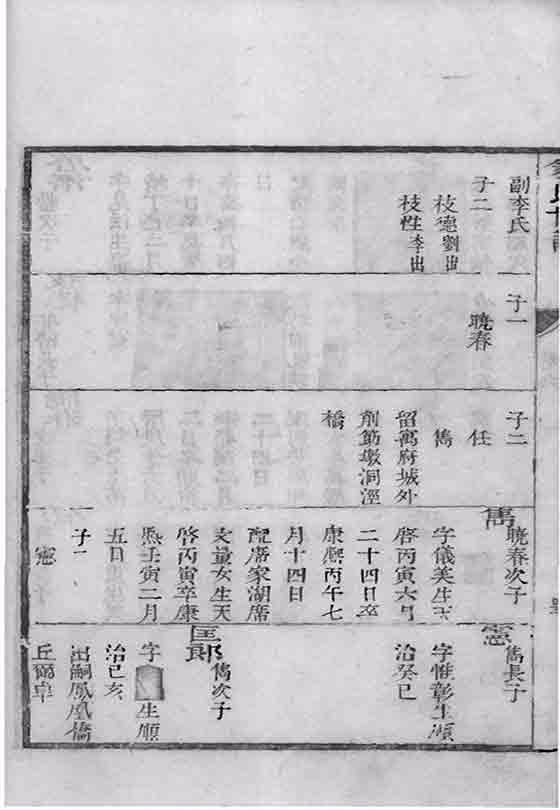 副李氏
子二
枝德劉出
枝性李出
子一
曉春
子二
任
雋
留寓府城外
削筋墩洞涇
橋
雋 曉春次子
字儀美生天
啓丙寅六月
二十四日卒
康熙丙午七
月十四日
配席家湖席
文量女生天
啓丙寅卒康
熙壬寅二月
五日
子二
憲
憲 雋長子
字惟彰生順
治癸巳
匡郎 雋次子
字 生順
治己亥
出嗣鳳凰橋
丘爾阜